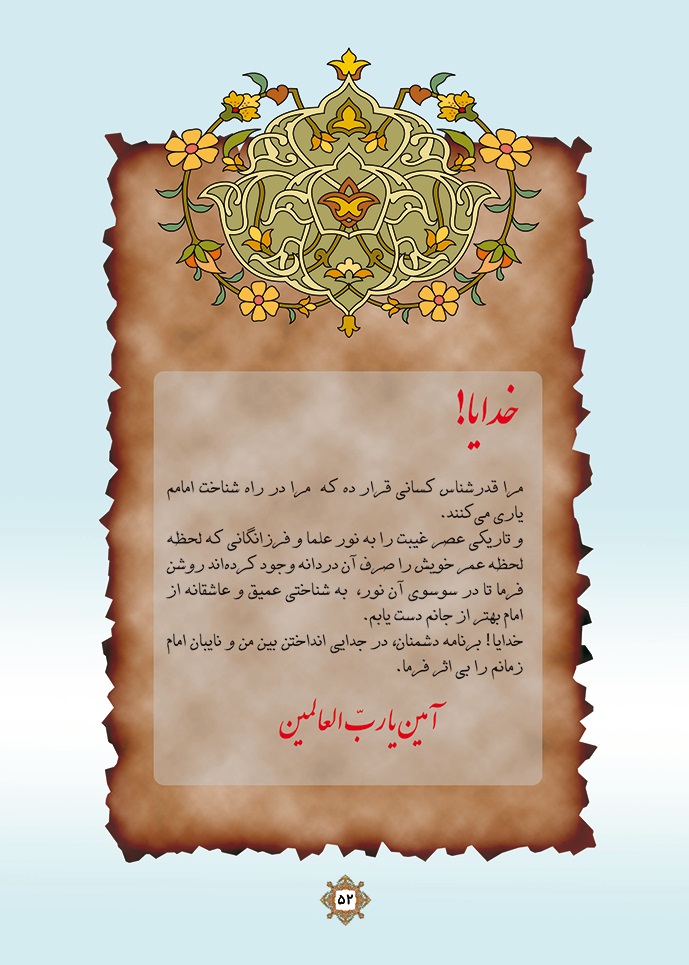 خدایا!
مرا قدرشناس کسانی قرار ده که مرا در راه شناخت امامم
یاری می‌کنند.
و تاریکی عصر غیبت را به نور علما و فرزانگانی که لحظه
لحظه عمر خویش را صرف آن دردانه وجود کرده‌اند روشن
فرما تا در سوسوی آن نور، به شناختی عمیق و عاشقانه از
امام بهتر از جانم دست یابم.
خدایا! برنامه دشمنان، در جدایی انداختن بین من و نایبان امام
زمانم را بی اثر فرما.
آمین یا ربّ العالمین
۵۲